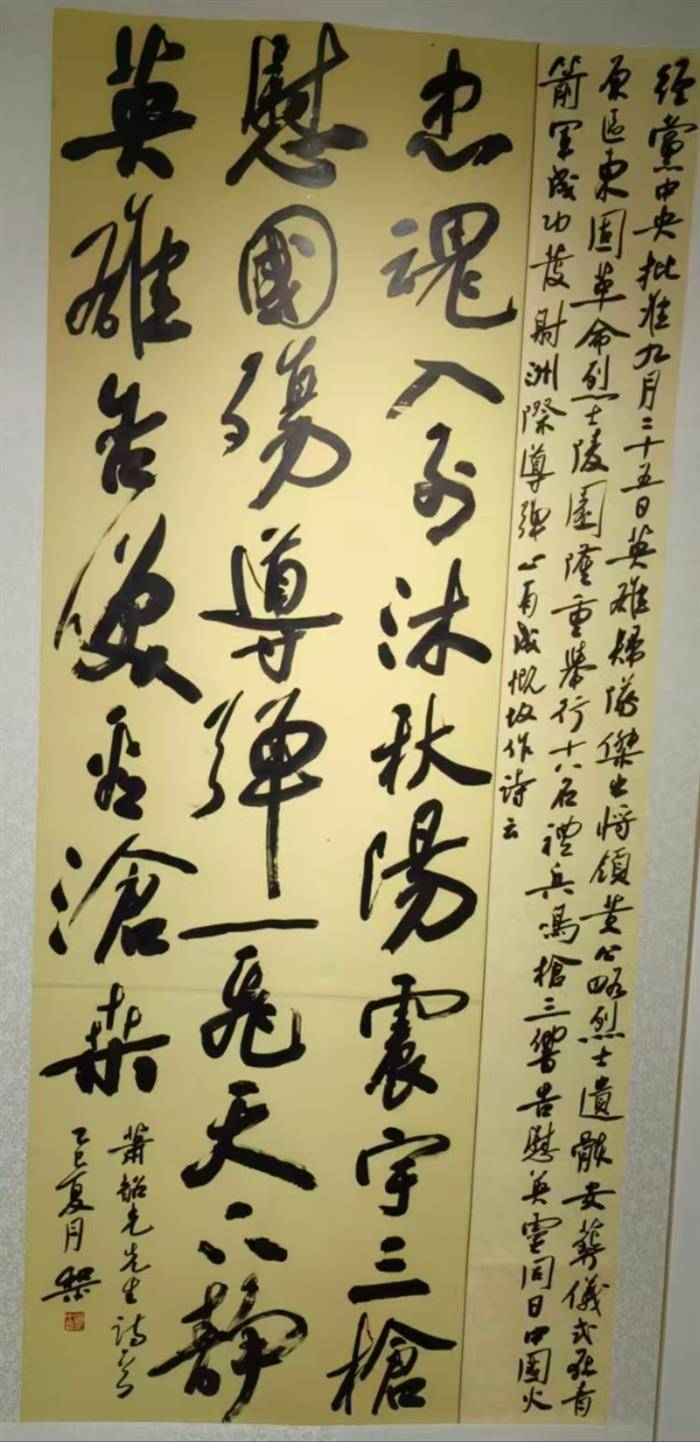 經黨中央批准九月二十五日英雄歸隊傑出将領黄公略烈士遺骸安葬儀式在青
原區東固革命烈士陵園隆重舉行十八名禮兵鳴槍三響告慰英靈同日中國火
箭軍成功發射洲際導弹心有感慨故作诗云
忠魂入列沐秋陽震宇三槍
慰國殤導弹一飛天下静
英雄含笑看滄桑
蕭韶光先生诗
乙巳夏月